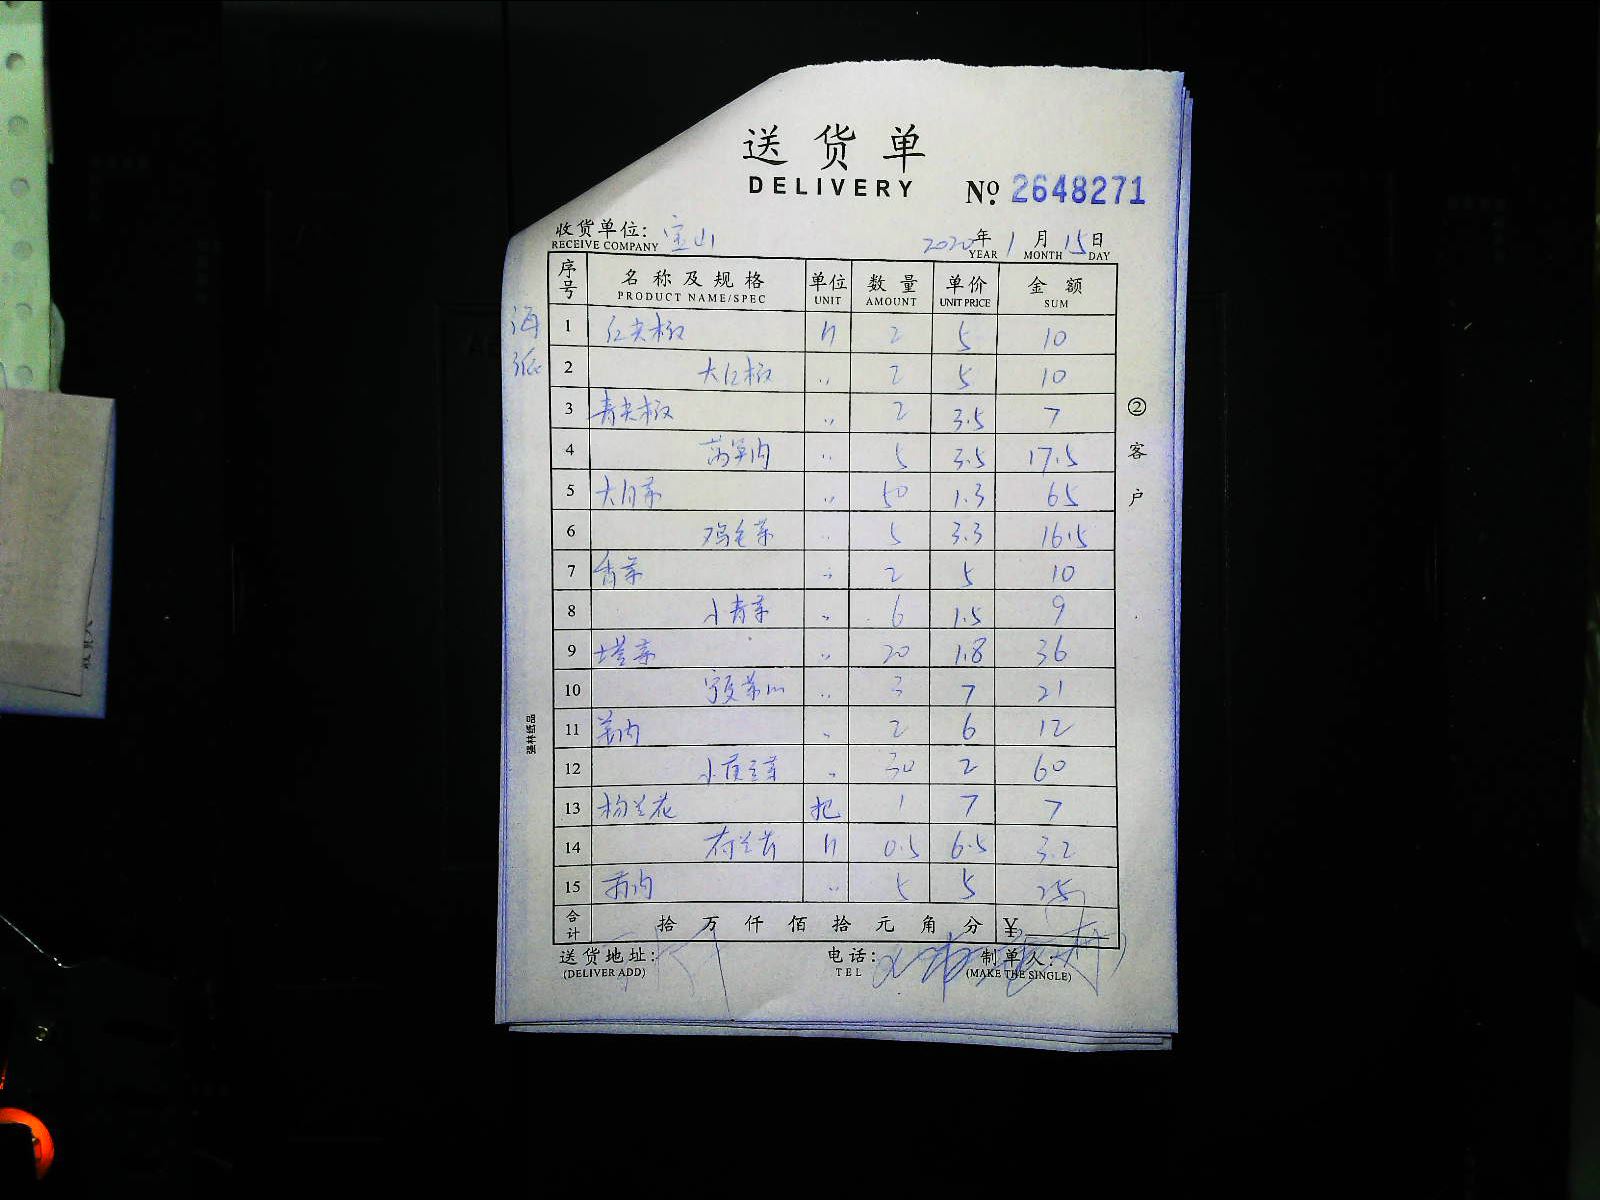 送货单
DELIVERY
No. 2648271
收货单位: 宝山 2020年 1月 15日
RECEIVE COMPANY YEAR MONTH DAY
序号 名称及规格 单位 数量 单价 金额
PRODUCT NAME/SPEC UNIT AMOUNT UNIT PRICE SUM
1 红尖椒 2 5 10
2 大红椒 〃 2 5 10
3 青尖椒 〃 2 3.5 7
4 莴笋肉 〃 5 3.5 17.5
5 大白菜 〃 50 1.3 65
6 鸡毛菜 〃 5 3.3 16.5
7 香菜 〃 2 5 10
8 小青菜 〃 6 1.5 9
9 塔菜 〃 20 1.8 36
10 〃 3 7 21
11 〃 2 6 12
12 小黄豆芽 〃 30 2 60
13 杨兰花 把 1 7 7
14 荷兰芹 0.5 6.5 3.2
15 〃 5 5 25
合计 拾 万 仟 佰 拾 元 角 分 ¥
送货地址: 电话: 制单人:
(DELIVER ADD) TEL (MAKE THE SINGLE)
② 客户
强林纸品